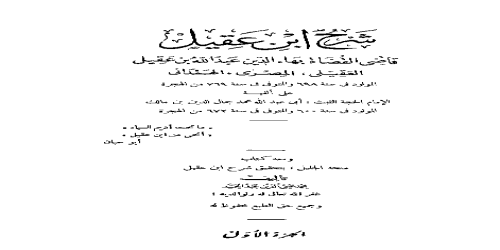 شرح ابن عقيل
قاضى القضاة بهاء الدين عبد الله بن عقيل
العقيلى ، المصرى ، الهمدانى
المولود فى سنة ٦٩٨ والمتوفى فى سنة ٧٦٩ من الهجرة
على ألفية
الإمام الحجة الثبت : أبى عبد الله محمد جمال الدين بن مالك
المولود فى سنة ٦٠٠ والمتوفى فى سنة ٦٧٢ من الهجرة
« ما تحت أديم السماء
أنحى من ابن عقيل »
أبو حيان
ومعه كتاب
منحة الجليل ، بتحقيق شرح ابن عقيل
تأليف
محمد محيى الدين عبد الحميد
غفر الله تعالى له ولوالديه !
وجميع حق الطبع محفوظ له
الجزء الأول